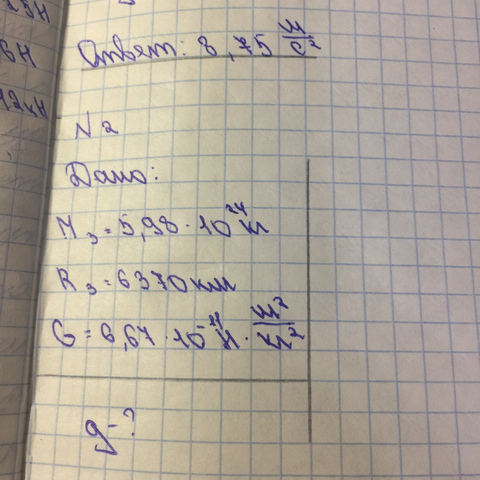 25Н
6Н
12кН
Ответ: 8,75 м/с²
N2
Дано:
M₃=5,98·10²⁴кг
R₃=6370км
G=6,67·10⁻¹¹Н·м²/кг²
g-?